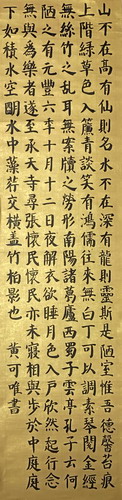 山不在高有仙則名水不在深有龍則靈斯是陋室惟吾德馨苔痕
上階綠草色入簾青談笑有鴻儒往來無白丁可以調素琴閱金經
無絲竹之亂耳無案牘之勞形南陽諸葛廬西蜀子雲亭孔子云何
陋之有元豐六年十月十二日夜解衣欲睡月色入戶欣然起行念
無與為樂者遂至承天寺尋張懷民懷民亦未寢相與步於中庭庭
下如積水空明水中藻荇交橫蓋竹柏影也 黃可唯書